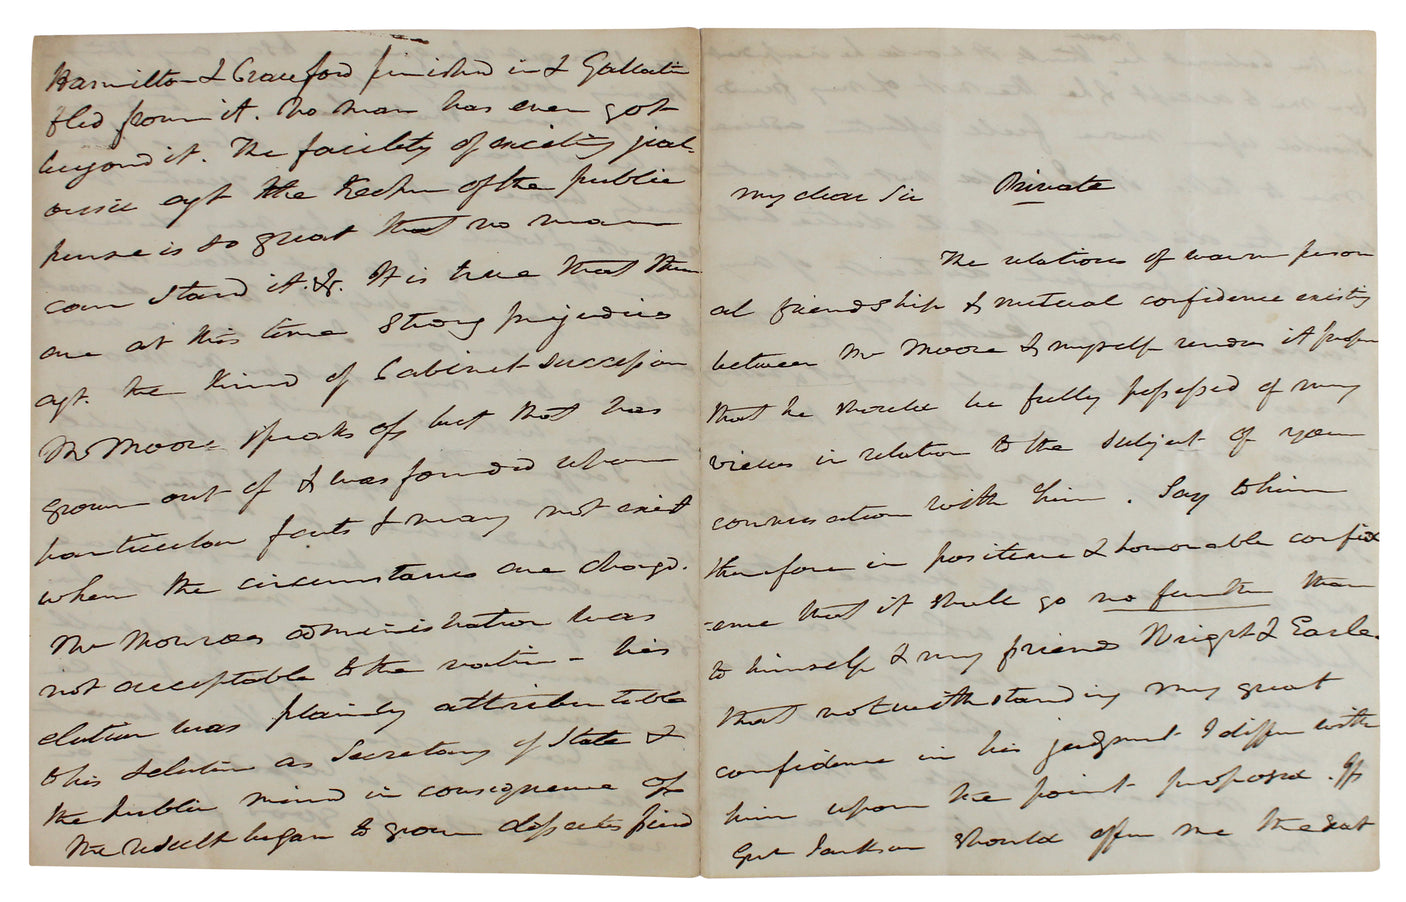 Hamilton & Crawford finished in & Gallatin
fled from it. No man has ever got
beyond it. The facility of exciting jeal-
ousie agt the Keeper of the public
purse is so great that no man
can stand it. &c. It is true that there
are at this time strong prejudices
agt. the Kind of Cabinet succession
Mr Moore speaks of but that has
grown out of & was founded upon
particular facts & may not exist
when the circumstances are changd.
Mr Monroes administration was
not acceptable to the nation - his
election was plainly attributable
to his selection as Secretary of State &
the public mind in consequence of
the result began to grow
My dear Sir Private
The relations of warm person
al friendship & mutual confidence existing
between Mr Moore & myself renders it proper
that he should be fully possessed of my
views in relation to the subject of your
conversation with him. Say to him
therefore in positive & honorable confid
-ence that it shall go no further than
to himself & my friends Wright & Earle.
that notwithstanding my great
confidence in his judgment I differ with
him upon the point proposed. If
Genl Jackson should offer me the seat